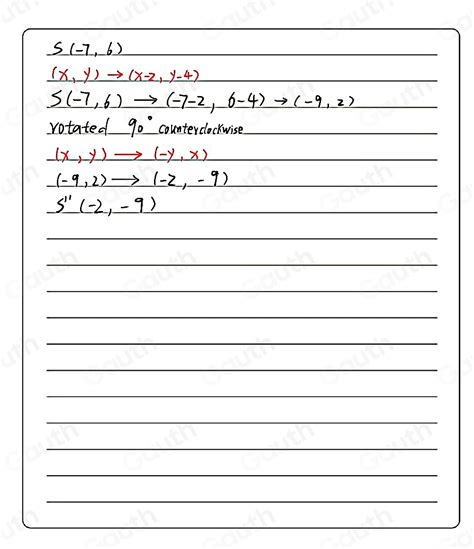 S(-7, 6)
(x, y) → (x-2, y-4)
S(-7, 6) → (-7-2, 6-4) → (-9, 2)
rotated 90° counterclockwise
(x, y) → (-y, x)
(-9, 2) → (-2, -9)
S'' (-2, -9)